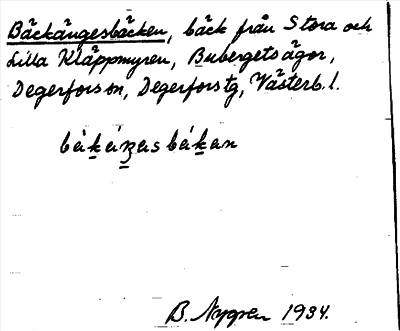 Bäckängesbäcken, bäck från Stora och
Lilla Kläppmyren, Bubergets ägor,
Degerfors sn, Degerfors tg, Västerb. l.
B. Nygren 1934.